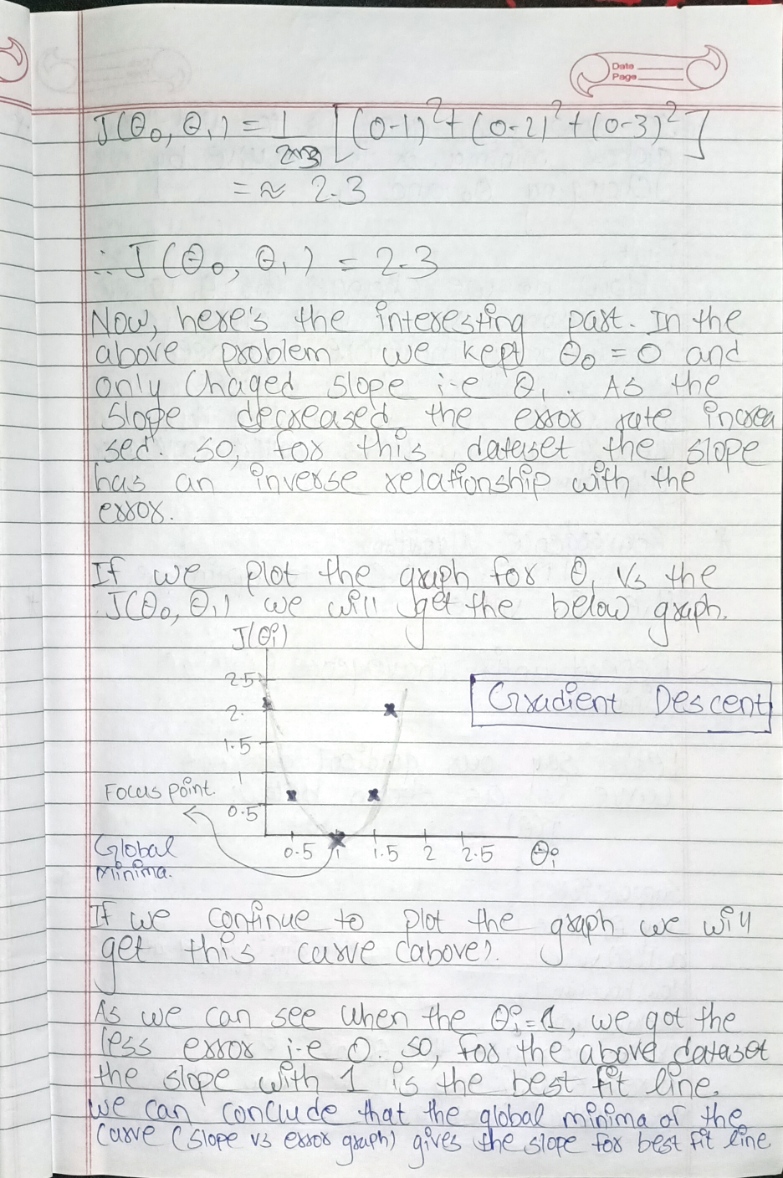 Date
Page
J(θ₀, θ₁) = 1/2×3 [(0-1)² + (0-2)² + (0-3)²]
= ≈ 2.3
∴ J(θ₀, θ₁) = 2.3
Now, here's the interesting part. In the
above problem we kept θ₀ = 0 and
only Chaged slope i.e θ₁. As the
Slope decreased the error rate increa
sed. so, for this dateset the slope
has an inverse relationship with the
error.
If we plot the graph for θ₁ Vs the
J(θ₀, θ₁) we will get the below graph.
J(θi)
2.5
2.
1.5
1
0.5
Gradient Descent
Focus point.
Global
Minima.
0.5 1 1.5 2 2.5 θi
If we continue to plot the graph we will
get this curve (above).
As we can see when the θi=1, we got the
less error i.e 0. so, for the above dataset
the slope with 1 is the best fit line.
we can conclude that the global minima of the
Curve (slope vs error graph) gives the slope for best fit line